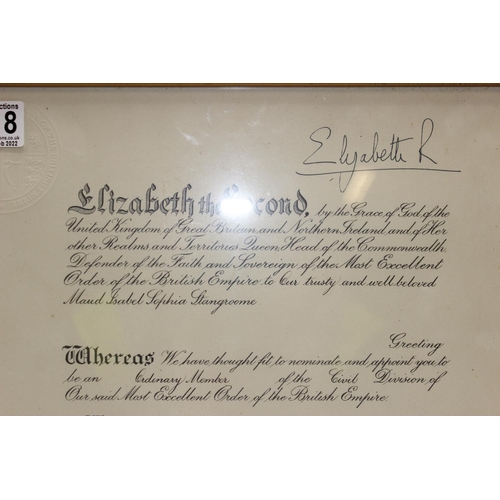 ctions
8
ns.co.uk
b 2022
Elizabeth R
Elizabeth the Second, by the Grace of God of the
United Kingdom of Great Britain and Northern Ireland and of Her
other Realms and Territories Queen, Head of the Commonwealth,
Defender of the Faith and Sovereign of the Most Excellent
Order of the British Empire to Our trusty and well-beloved
Maud Isabel Sophia Stangroome
Greeting
Whereas We have thought fit to nominate and appoint you to
be an Ordinary Member of the Civil Division of
Our said Most Excellent Order of the British Empire.